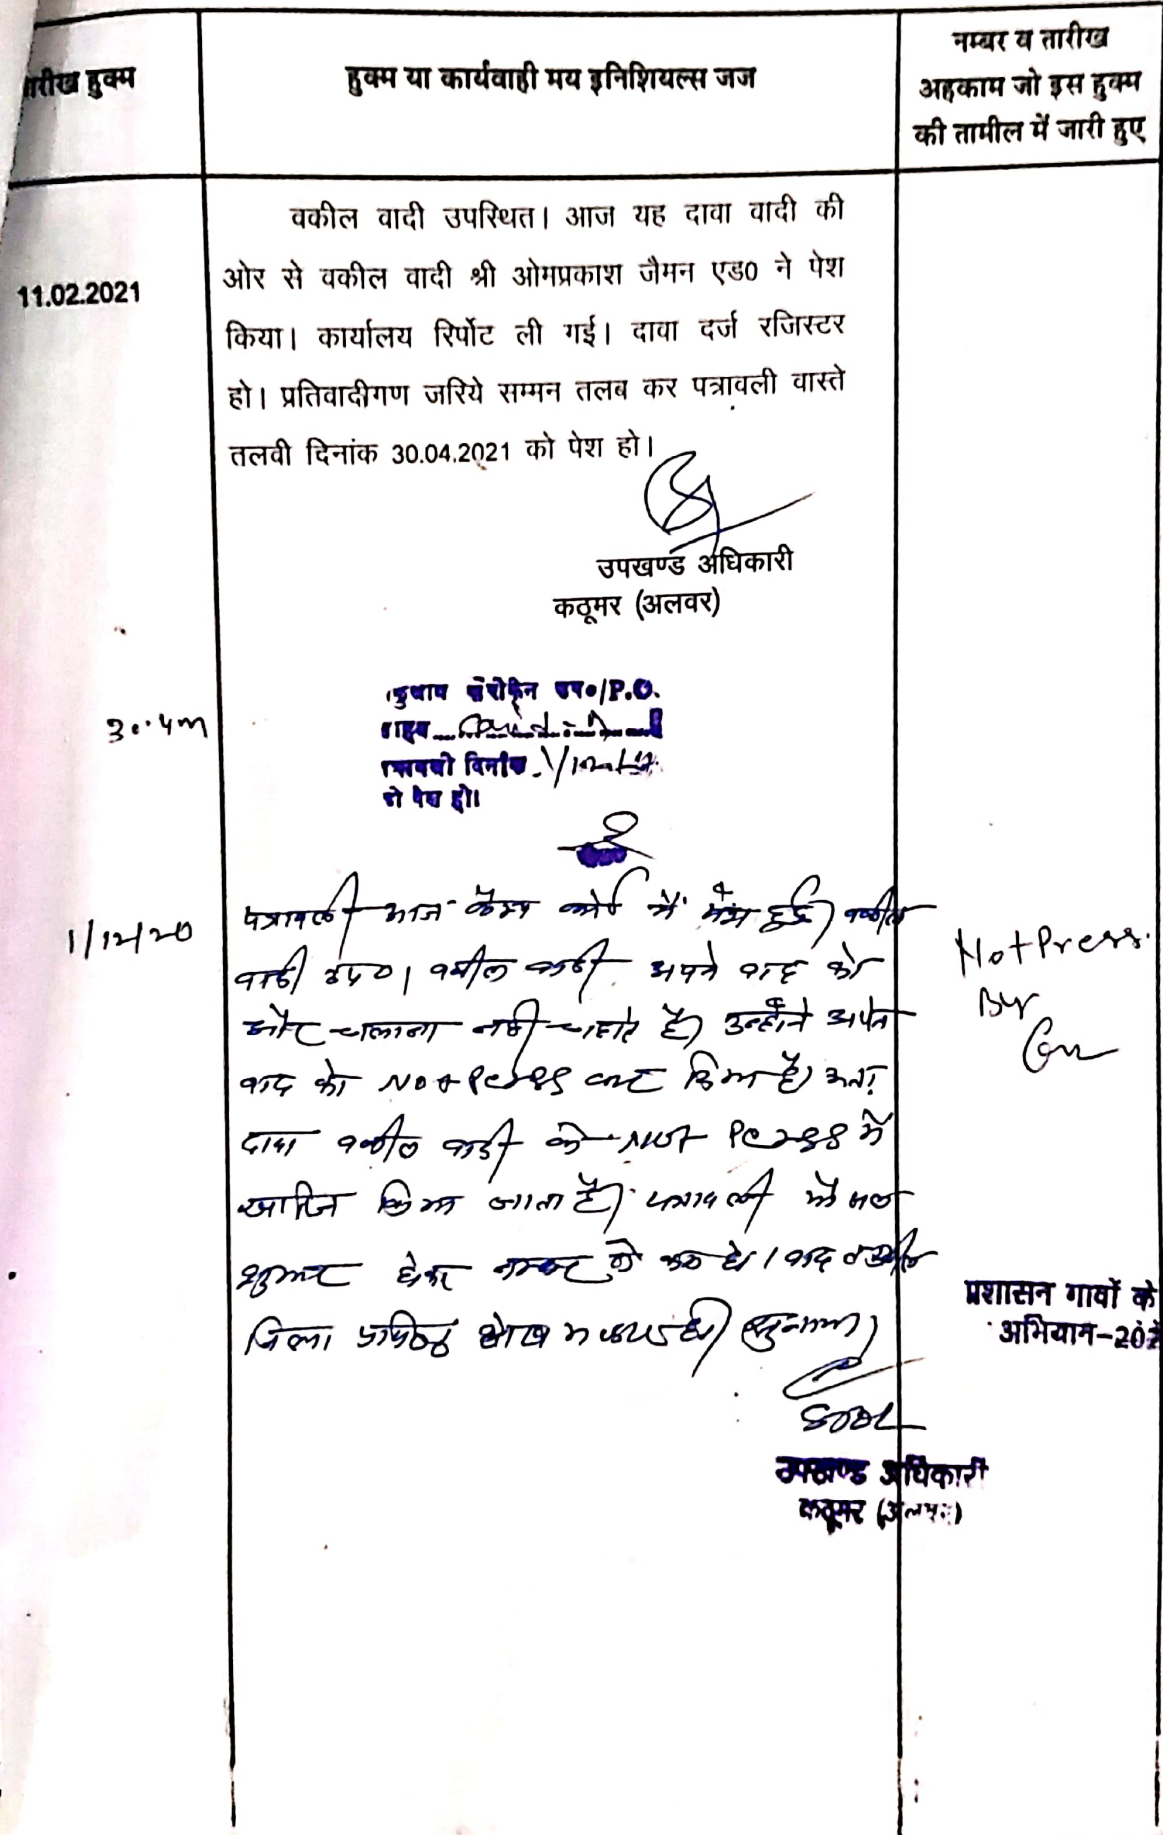 तारीख हुक्म
हुक्म या कार्यवाही मय इनिशियल्स जज
नम्बर व तारीख
अहकाम जो इस हुक्म
की तामील में जारी हुए
11.02.2021
वकील वादी उपस्थित। आज यह दावा वादी की
ओर से वकील वादी श्री ओमप्रकाश जैमन एड0 ने पेश
किया। कार्यालय रिर्पोट ली गई। दावा दर्ज रजिस्टर
हो। प्रतिवादीगण जरिये सम्मन तलब कर पत्रावली वास्ते
तलवी दिनांक 30.04.2021 को पेश हो।
उपखण्ड अधिकारी
कठूमर (अलवर)
/P.O.
दिनांक
को पेश हो।
पत्रावली आज कैम्प कोर्ट में पेश हुई। वकील
वादी उप0। वकील वादी अपने वाद को
और चलाना नही चाहते है। उन्होंने अपने
वाद को Not Press कर दिया है। अतः
दावा वकील वादी के Not Press में
खारिज किया जाता है। पत्रावली फैसल
शुमार होकर नम्बर से कम हो। वाद
जिला हो।
Not Press.
By
प्रशासन गावों के
अभियान-202
उपखण्ड अधिकारी
कठूमर (अलवर)